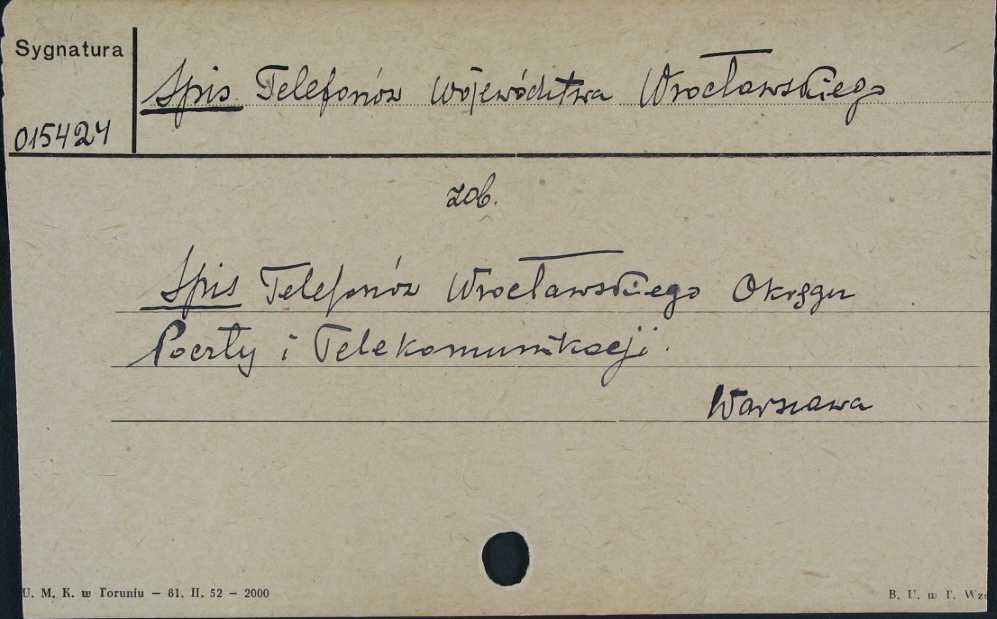 Sygnatura
Spis Telefonów Województwa Wrocławskiego
015424
zob.
Spis Telefonów Wrocławskiego Okręgu
Poczty i Telekomunikacji.
Warszawa
U. M. K. w Toruniu — 81. II. 52 — 2000
B. U. w T. Wzó